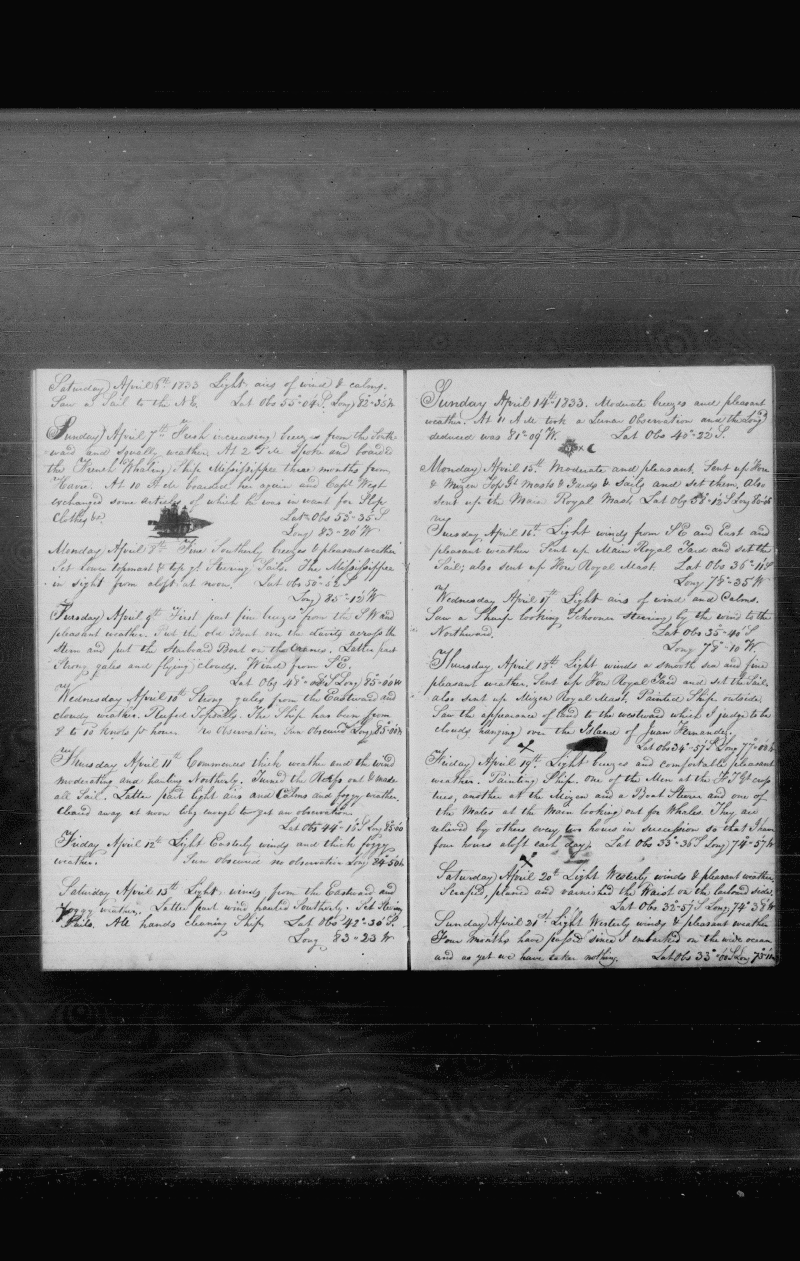 Saturday April 6th 1833 Light airs of wind & calms.
Saw a Sail to the N.E. Lat Obs 55°-04 S. Long 82°-35 W
Sunday April 7th Fresh increasing breezes from the South
ward and squally weather. At 2 P.M. Spoke and boarded
the French Whaling Ship Mississippee three months from
Havre. At 10 A.M. boarded her again and Capt West
exchanged some articles of which he was in want for Slop
Clothes &c. Lat Obs 53°-35 S.
Long 83-20 W
Monday April 8th Fine Southerly breezes & pleasant weather
Set Lower topmast & top gt Steering Sails. The Mississippee
in sight from aloft at noon. Lat Obs 50°-52 S.
Long 85°-12 W
Tuesday April 9th First part fine breezes from the S W and
pleasant weather. Put the old Boat on the Davits across the
Stern and put the Starboard Boat on the Cranes. Latter part
Strong gales and flying clouds. Wind from S E.
Lat Obs 48°-08 S Long 85°-00 W
Wednesday April 10th Strong gales from the Eastward and
cloudy weather. Reefed Topsails. The Ship has been from
8 to 10 Knots pr hour. no Observation, Sun Obscured Long 85°-00 W
Thursday April 11th Commences thick weather and the wind
moderating and hauling Northerly. Turned the Reefs out & made
all Sail. Latter part light airs and Calms and foggy weather.
cleared away at noon long enough to get an observation
Lat Obs 44°-16 S Long 85°00
Friday April 12th Light Easterly winds and thick foggy
weather. Sun obscured no observation Long 84°-50 W
Saturday April 13th Light winds from the Eastward and
Foggy weather. Latter part wind hauled Southerly. Set Steering
Sails. All hands cleaning Ship. Lat Obs 42°-36 S.
Long 83-23 W
Sunday April 14th 1833. Moderate breezes and pleasant
weather. At 11 A.M. took a Lunar Observation and the Long
deduced was 81°09 W. Lat Obs 40°-22 S.
Monday April 15th Moderate and pleasant. Sent up Fore
& Mizen Top Gt masts & Yards & Sails and set them, Also
sent up the Main Royal Mast. Lat Obs 38°-12 S Long
Tuesday April 16th Light winds from S E and East and
pleasant weather Sent up Main Royal Yard and set the
Sail; also sent up Fore Royal Mast. Lat Obs 36°-11 S
Long 78°-35 W
Wednesday April 17th Light airs of wind and Calms.
Saw a Sharp looking Schooner steering by the wind to the
Northward. Lat Obs 35°-40 S
Long 78°-10 W.
Thursday, April 18th Light winds a smooth sea and fine
pleasant weather. Sent up Fore Royal Yard and set the Sail.
also sent up Mizen Royal Mast. Painted Ship outside.
Saw the appearance of land to the westward which I judge to be
clouds hanging over the Island of Juan Fernandes.
Lat Obs 34°-57 S Long 77°-00 W
Friday April 19th Light breezes and comfortable pleasant
weather. Painting Ship. one of the Men at the F. T. Gt cross
trees, another at the Mizen and a Boat Steerer and one of
the Mates at the Main looking out for Whales. They are
relieved by others every two hours in succession so that I have
four hours aloft each day. Lat Obs 33°-36 S Long 74°-57 W
Saturday April 20th Light Westerly winds & pleasant weather.
Scraped, planed and varnished the Waist on the larboard side.
Lat Obs 32°-57 S Long 74° 38 W
Sunday April 21st Light Westerly winds & pleasant weather
Four months have passed since I embarked on the wide ocean
and as yet we have taken nothing. Lat Obs 33°-00 S Long